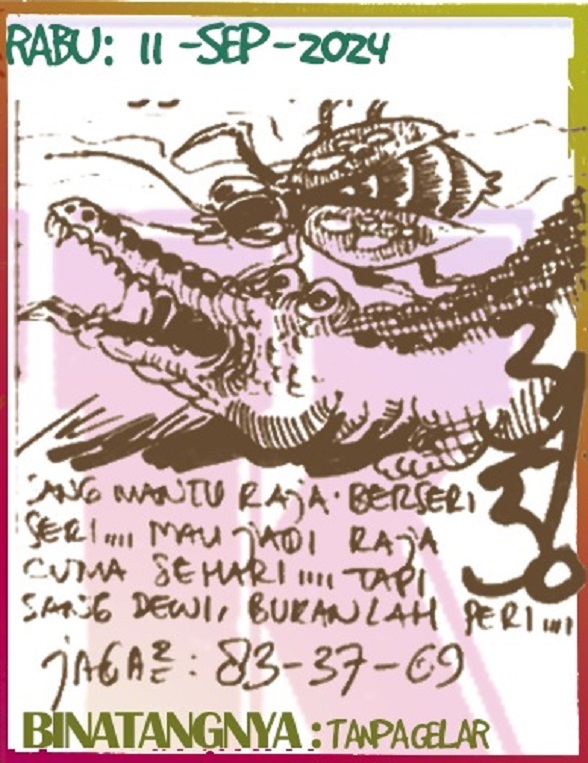 RABU: 11-SEP-2024
SANG MANTU RAJA. BERSERI
SERI.... MAU JADI RAJA
CUMA SEHARI.... TAPI
SANG DEWI, BUKANLAH PERI....
JAGA2 : 83-37-69
BINATANGNYA : TANPAGELAR